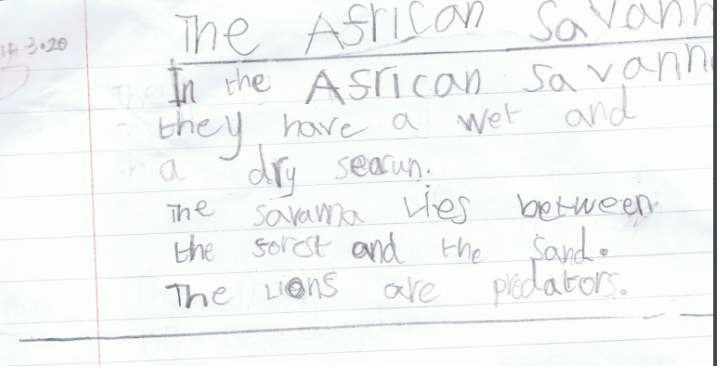 14.3.20
The African Savann
In the African savann
they have a wet and
a dry seasun.
The savanna lies between
the forest and the sand.
The Lions are predators.